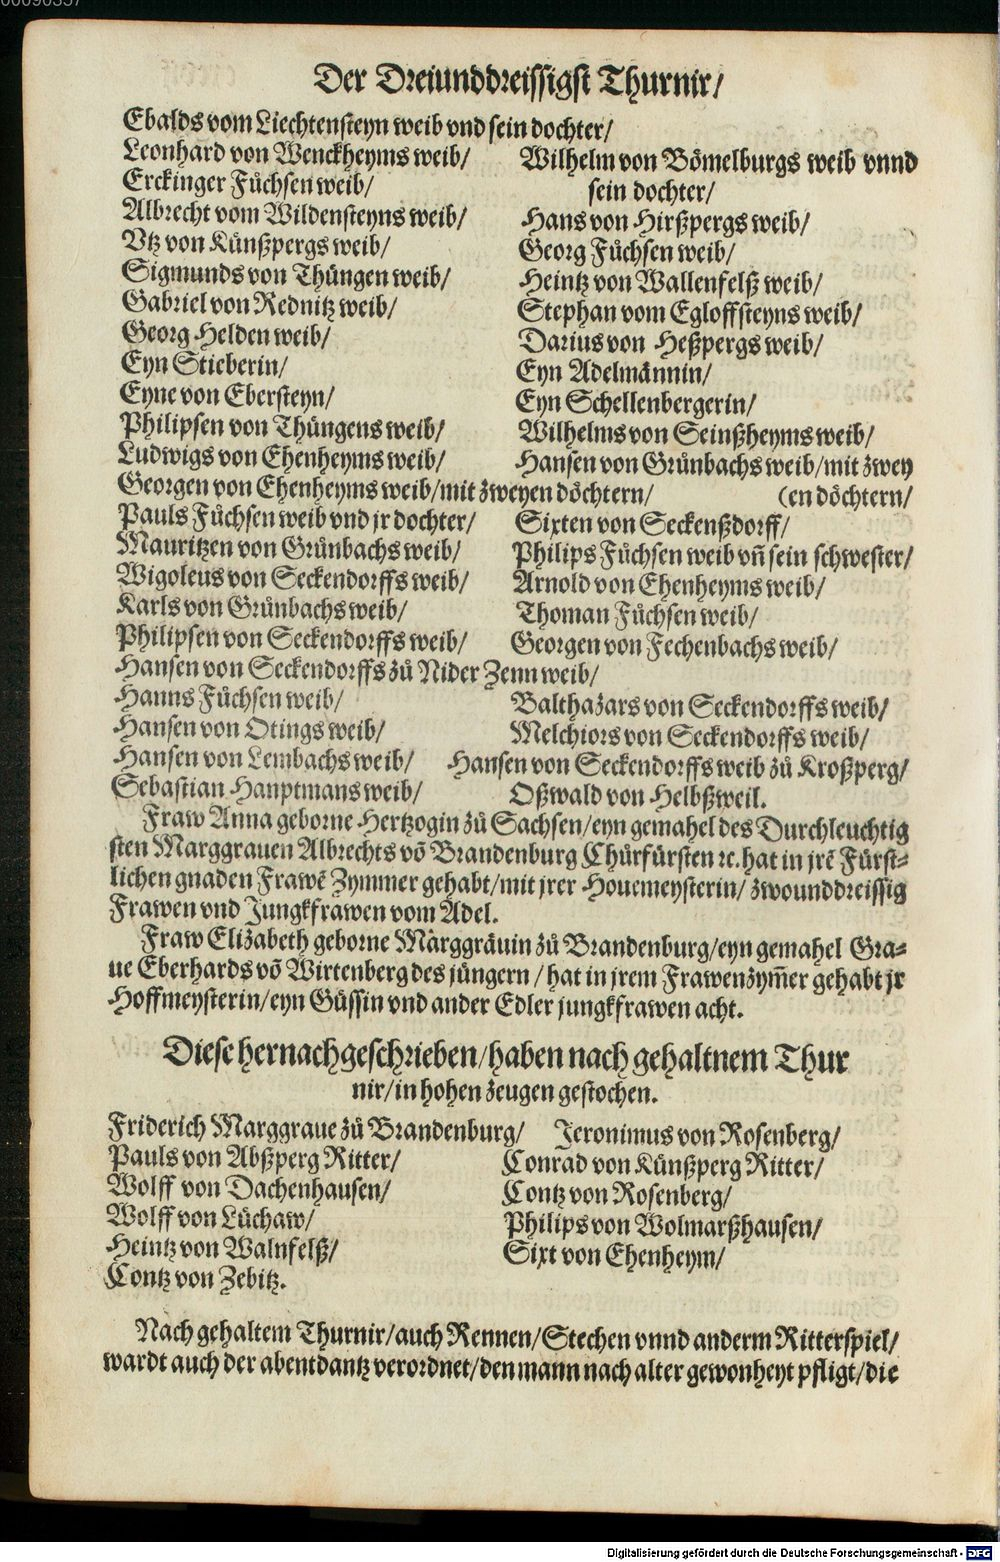 00090357
Der Dreiunddreissigst Thurnir/
Ebalds vom Liechtensteyn weib vnd sein dochter/
Leonhard von Wenckheyms weib/
Erckinger Füchsen weib/
Albrecht vom Wildensteyns weib/
Vtz von Künßpergs weib/
Sigmunds von Thüngen weib/
Gabriel von Rednitz weib/
Georg Helden weib/
Eyn Stieberin/
Eyne von Ebersteyn/
Philipsen von Thüngens weib/
Ludwigs von Ehenheyms weib/
Wilhelm von Bömelburgs weib vnnd
sein dochter/
Hans von Hirßpergs weib/
Georg Füchsen weib/
Heintz von Wallenfelß weib/
Stephan vom Egloffsteyns weib/
Darius von Heßpergs weib/
Eyn Adelmännin/
Eyn Schellenbergerin/
Wilhelms von Seinßheyms weib/
Hansen von Grünbachs weib/mit zwey
(en döchtern/
Georgen von Ehenheyms weib/mit zweyen döchtern/
Pauls Füchsen weib vnd jr dochter/
Mauritzen von Grünbachs weib/
Wigoleus von Seckendorffs weib/
Karls von Grünbachs weib/
Philipsen von Seckendorffs weib/
Sixten von Seckenßdorff/
Philips Füchsen weib vñ sein schwester/
Arnold von Ehenheyms weib/
Thoman Füchsen weib/
Georgen von Fechenbachs weib/
Hansen von Seckendorffs zů Nider Zenn weib/
Hanns Füchsen weib/
Hansen von Otings weib/
Hansen von Lembachs weib/
Sebastian Hauptmans weib/
Balthazars von Seckendorffs weib/
Melchiors von Seckendorffs weib/
Hansen von Seckendorffs weib zů Kroßperg/
Oßwald von Helbßweil.
Fraw Anna geborne Hertzogin zů Sachsen/eyn gemahel des Durchleuchtig
sten Marggrauen Albrechts võ Brandenburg Chürfürsten ꝛc. hat in jrẽ Fürst-
lichen gnaden Frawẽ Zymmer gehabt/mit jrer Houemeysterin/ zwounddreissig
Frawen vnd Jungkfrawen vom Adel.
Fraw Elizabeth geborne Marggräuin zů Brandenburg/eyn gemahel Gra-
ue Eberhards võ Wirtenberg des jüngern / hat in jrem Frawenzym̃er gehabt jr
Hoffmeysterin/eyn Güssin vnd ander Edler jungkfrawen acht.
Diese hernachgeschrieben/haben nach gehaltnem Thur
nir/in hohen zeugen gestochen.
Friderich Marggraue zů Brandenburg/
Pauls von Abßperg Ritter/
Wolff von Dachenhausen/
Wolff von Lüchaw/
Heintz von Walnfelß/
Contz von Zebitz.
Jeronimus von Rosenberg/
Conrad von Künßperg Ritter/
Contz von Rosenberg/
Philips von Wolmarßhausen/
Sixt von Ehenheym/
Nach gehaltem Thurnir/auch Rennen/Stechen vnnd anderm Ritterspiel/
wardt auch der abentdantz verordnet/den mann nach alter gewonheyt pfligt/die
Digitalisierung gefördert durch die Deutsche Forschungsgemeinschaft - DFG